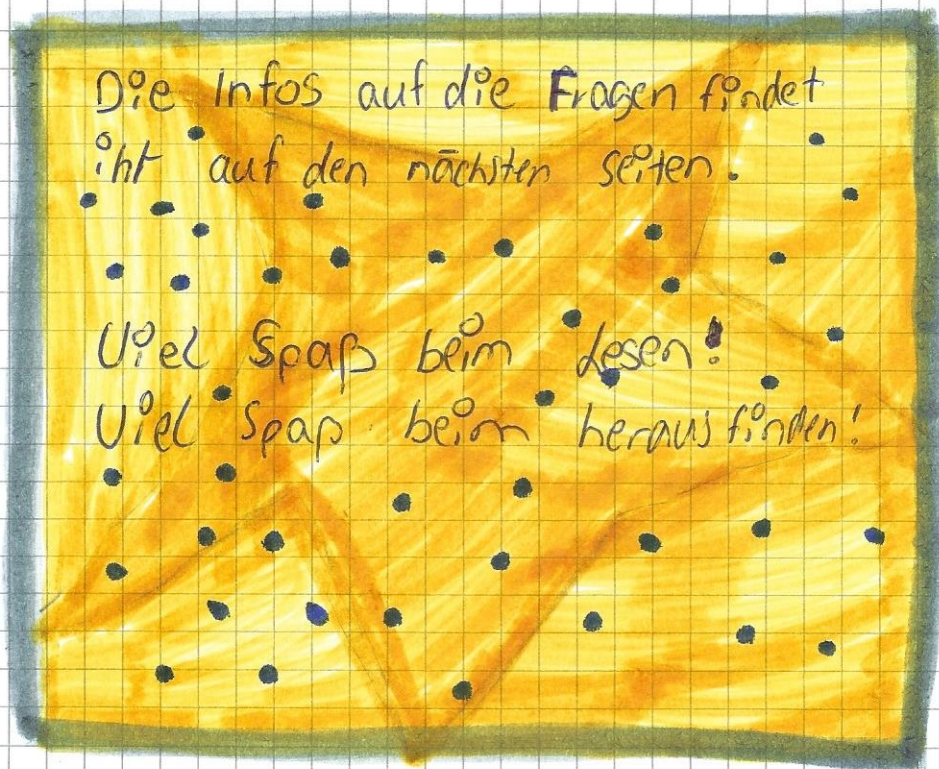 Die Infos auf die Fragen findet
ihr auf den nächsten seiten.
Viel Spaß beim Lesen!
Viel Spaß beim herausfinden!